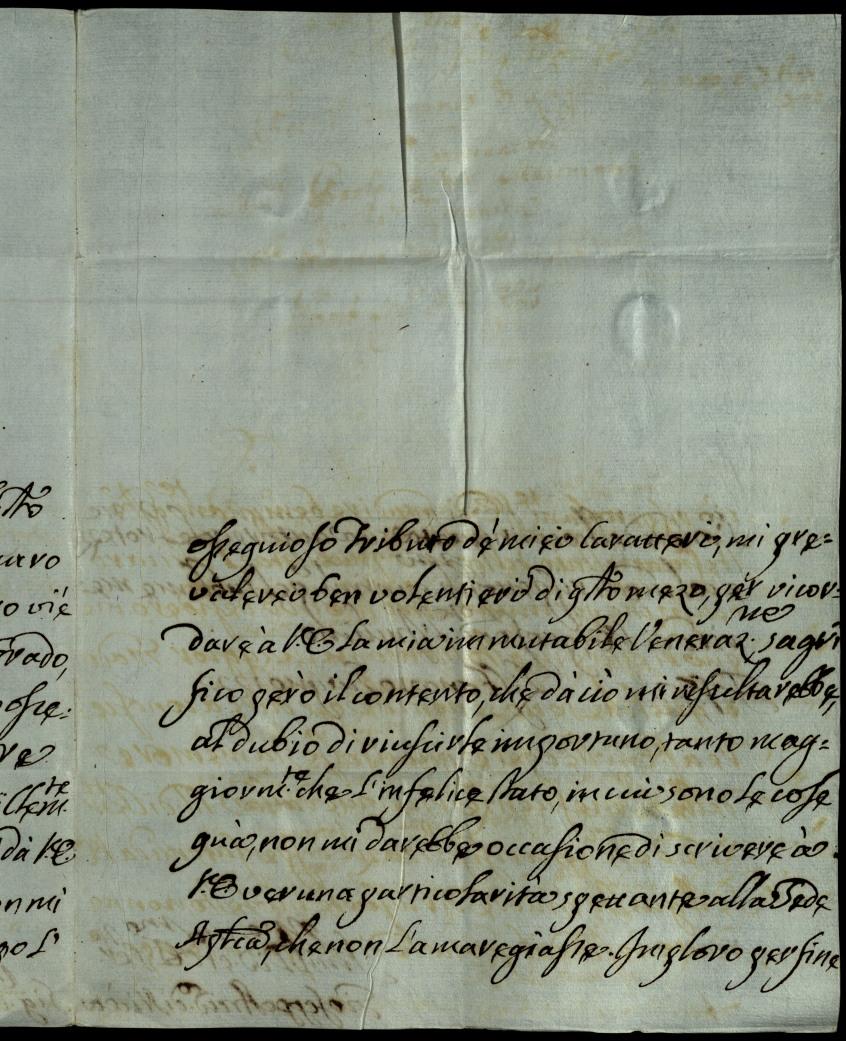 tto
uro
o vie
rado,
osse:
re
illem.te
da V.E.
on mi
po l'
ossequioso tributo dé miei Caratteri, mi pre=
valerei ben volentieri di q.sto mezo, per ricor=
dare à V.E. la mia immutabile Veneraz.ne; sagri
fico però il contento, che da ciò mi risultarebbe,
al dubio di riuscirle importuno, tanto mag=
giorm.te che l'infelice stato, in cui sono le cose
quà, non mi darebbe occasione di scrivere à
V.E. veruna particolarità spettante alla Sede
Aplica, che non l'amaregiasse. Imploro per fine